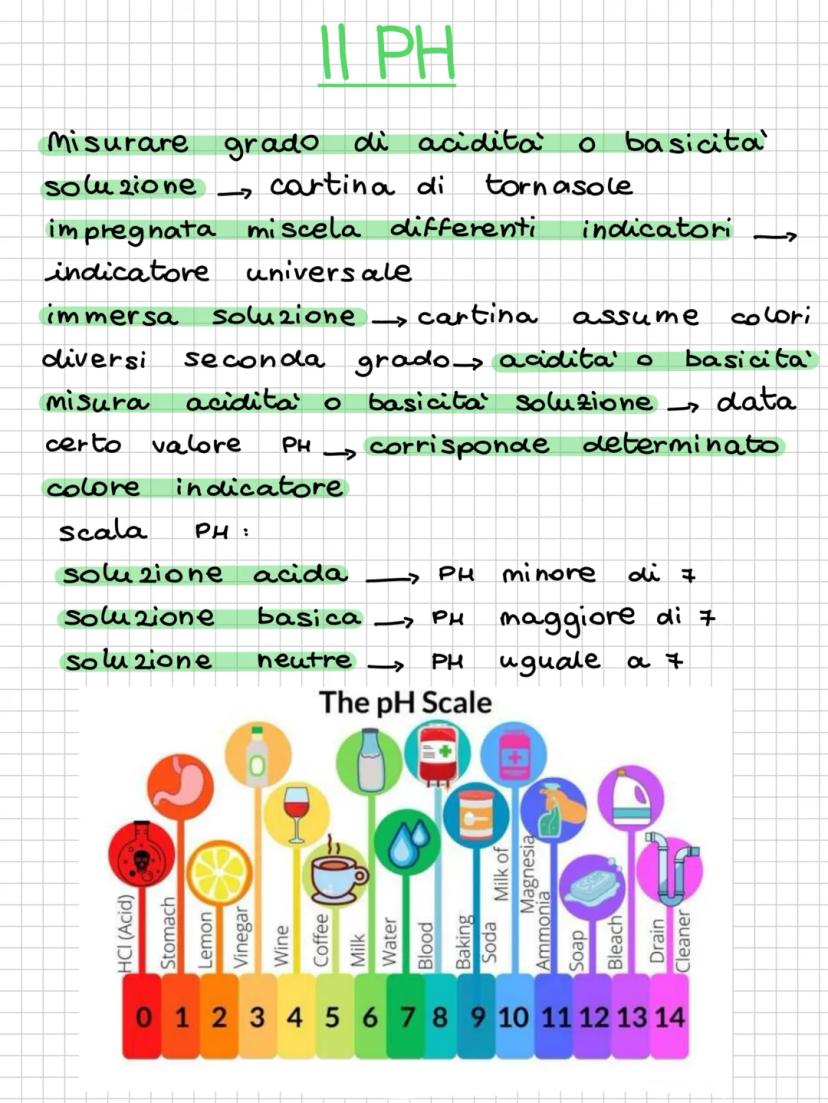 Il PH
Misurare grado di acidità o basicità
soluzione → cartina di tornasole
impregnata miscela differenti indicatori →
indicatore universale
immersa soluzione → cartina assume colori
diversi seconda grado → acidità o basicità
misura acidità o basicità soluzione → data
certo valore PH → corrisponde determinato
colore indicatore
scala PH:
soluzione acida → PH minore di 7
soluzione basica → PH maggiore di 7
soluzione neutre → PH uguale a 7
The pH Scale
HCl (Acid)
Stomach
Lemon
Vinegar
Wine
Coffee
Milk
Water
Blood
Baking
Soda
Milk of
Magnesia
Ammonia
Soap
Bleach
Drain
Cleaner
0 1 2 3 4 5 6 7 8 9 10 11 12 13 14